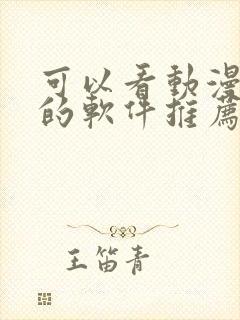 可以看動漫
的軟件推薦
王笛青